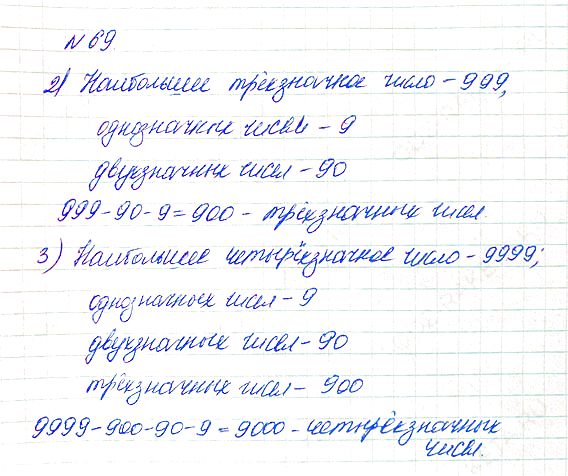 №69.
2) Наибольшее трёхзначное число – 999,
однозначных чисел – 9
двухзначных чисел – 90
999-90-9=900 - трёхзначных чисел.
3) Наибольшее четырёхзначное число – 9999;
однозначных чисел – 9
двухзначных чисел – 90
трёхзначных чисел – 900
9999-900-90-9=9000 - четырёхзначных
чисел.